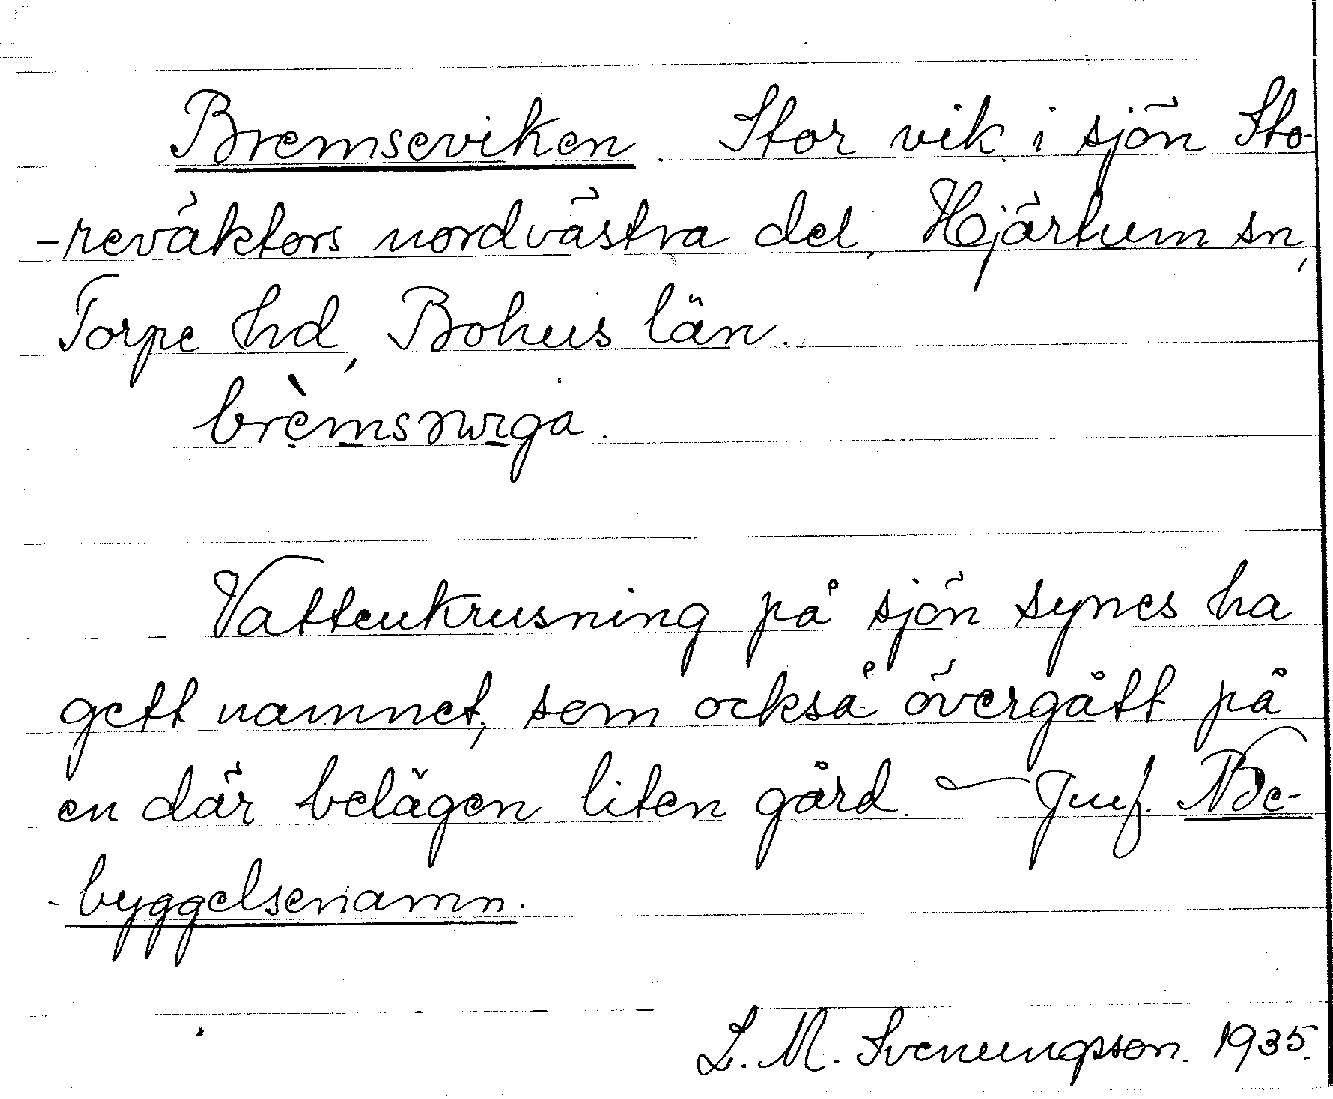 Bremseviken. Stor vik i sjön Sto-
-reväktors nordvästra del, Hjärtum sn,
Torpe hd, Bohus län.
brèmsəvıga.
Vattenkrusning på sjön synes ha
gett namnet, som också övergått på
en där belägen liten gård. – Jmf. Be-
-byggelsenamn.
L. M. Svenungsson. 1935.